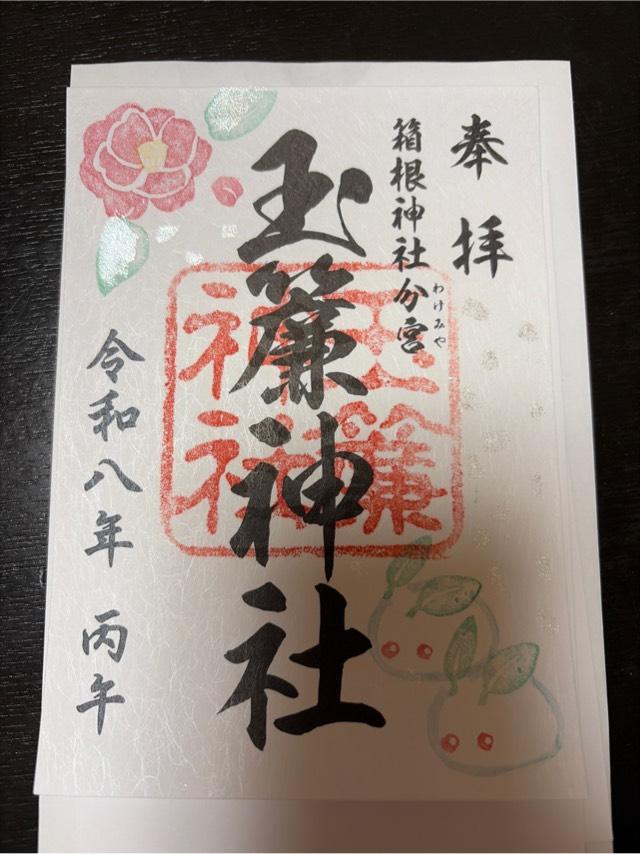 奉拝
箱根神社分宮
わけみや
玉簾神社
玉簾
神社
令和八年 丙午